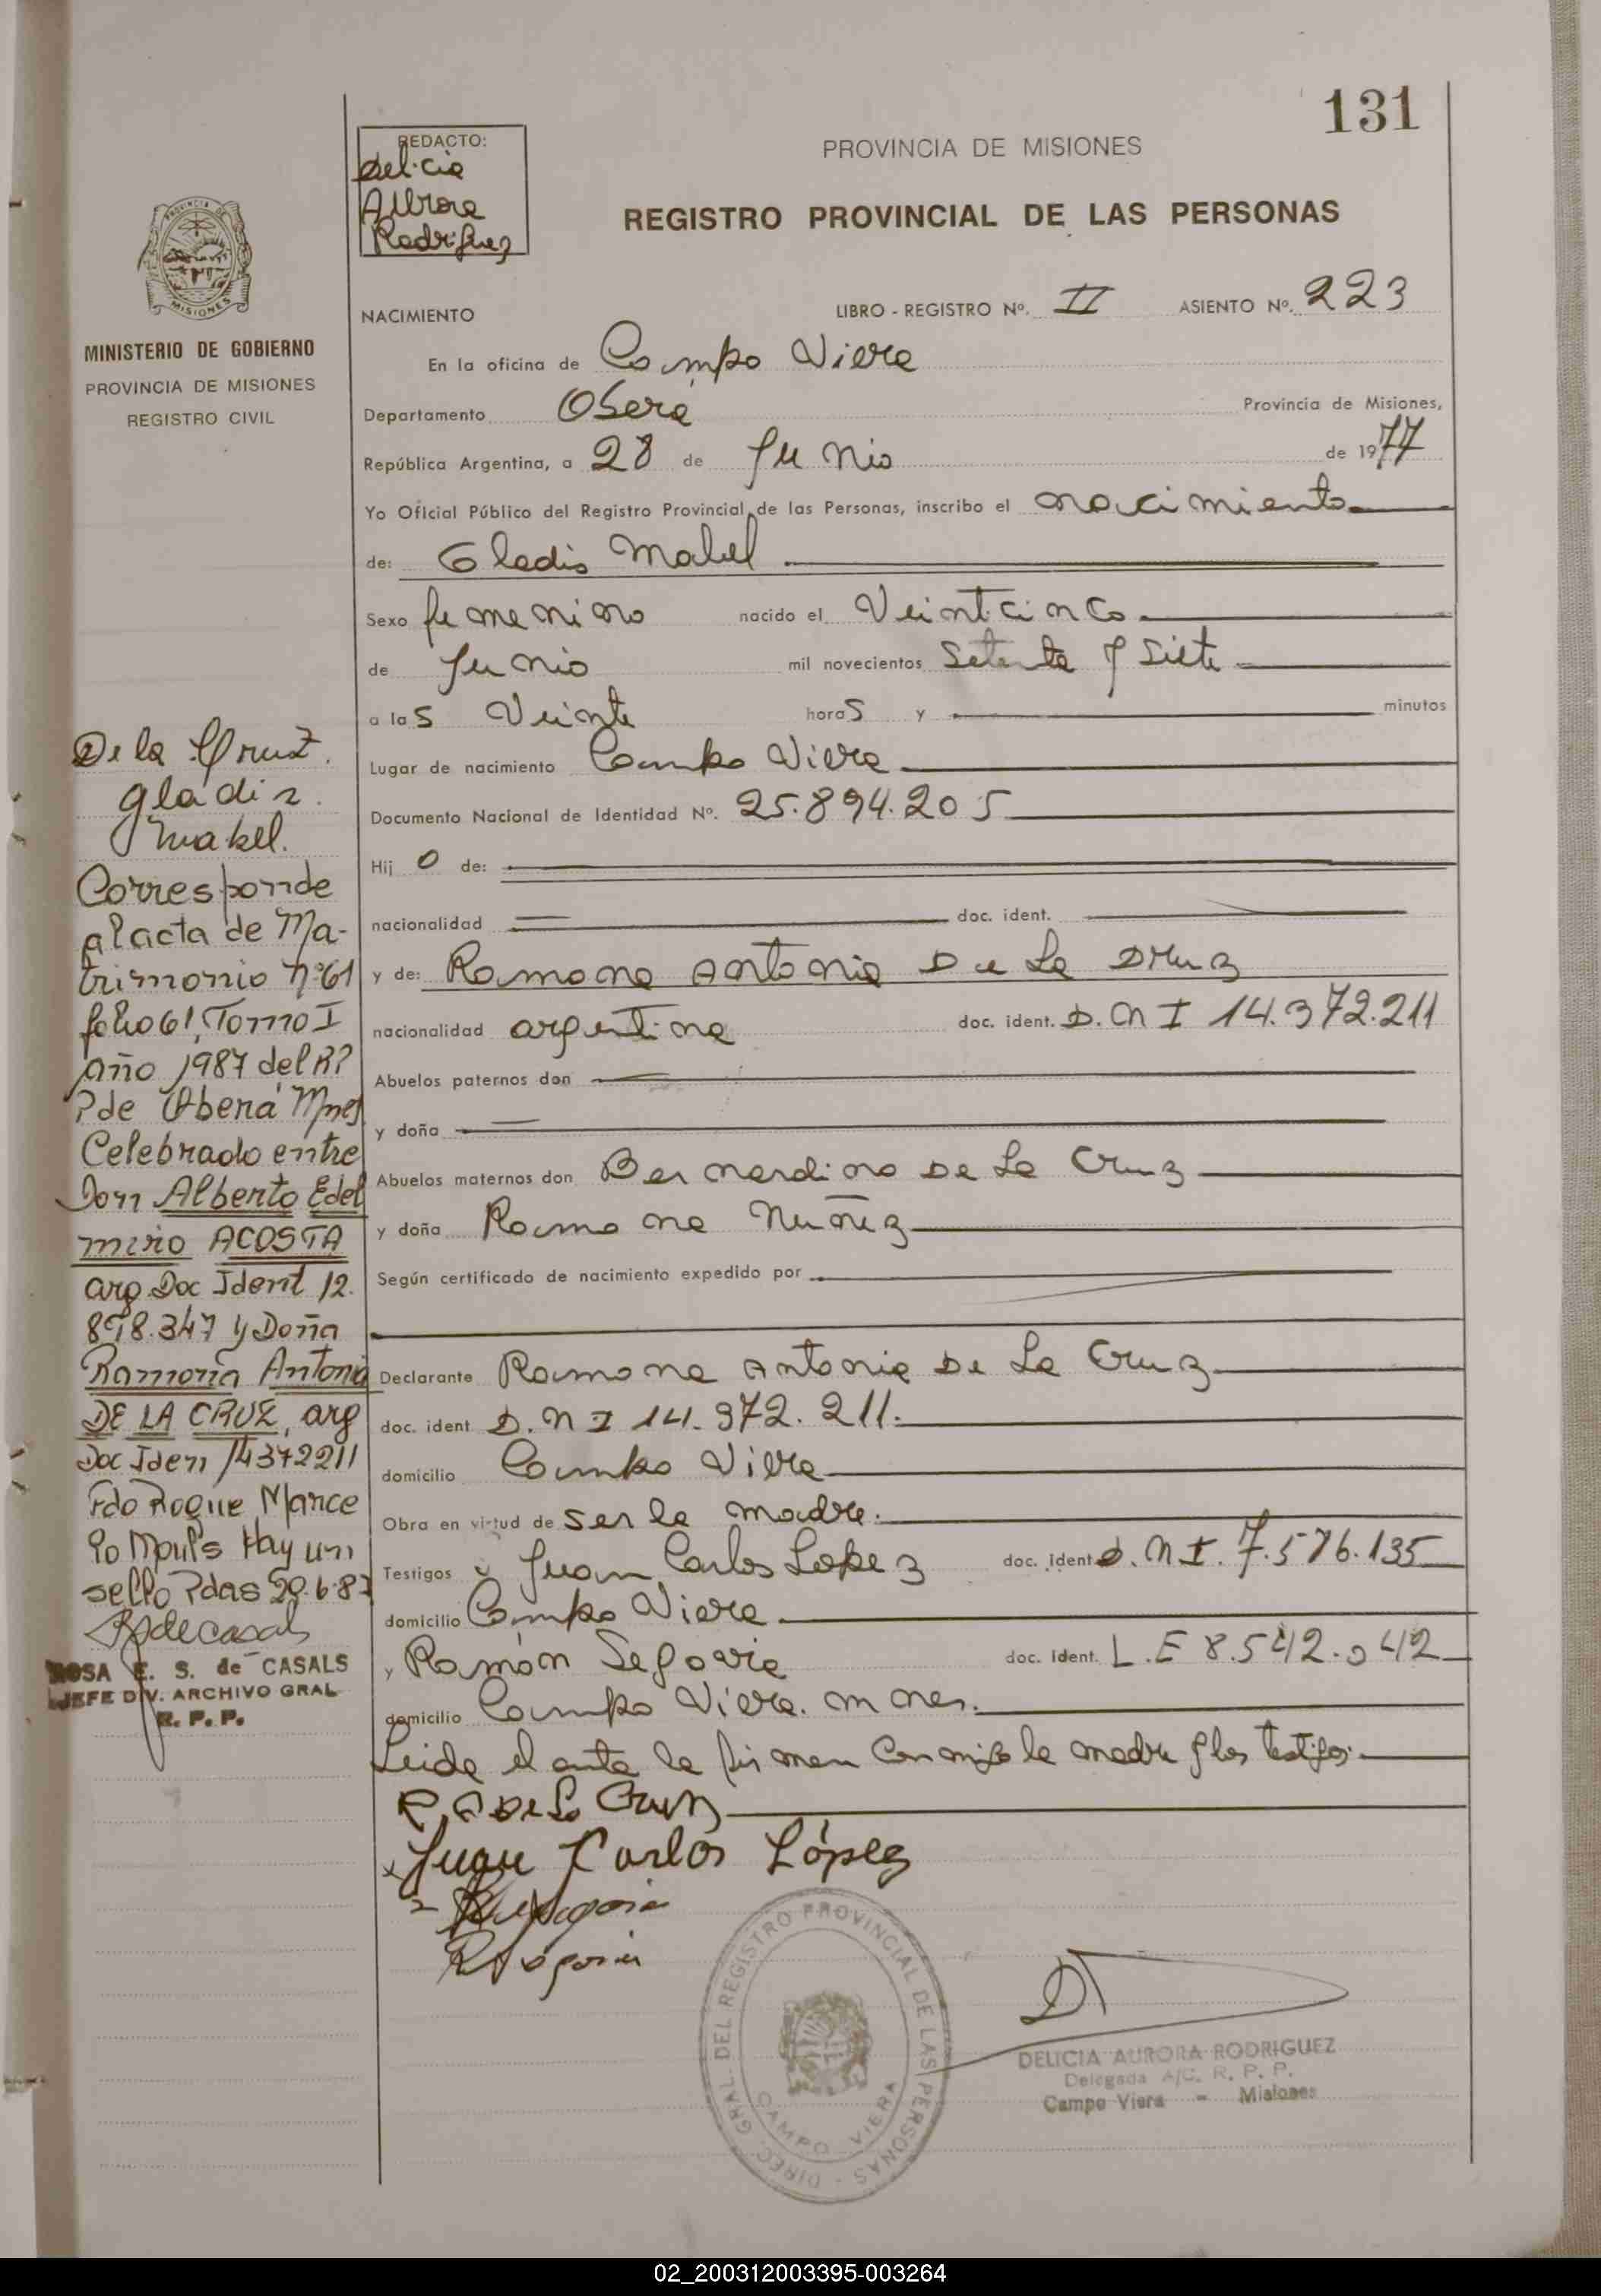 131
REDACTO:
Delicia
Aurora
Rodriguez
PROVINCIA DE MISIONES
REGISTRO PROVINCIAL DE LAS PERSONAS
NACIMIENTO LIBRO - REGISTRO Nº. II ASIENTO Nº. 223
En la oficina de Campo Viera
Departamento Oberá Provincia de Misiones,
República Argentina, a 28 de Junio de 1977
Yo Oficial Público del Registro Provincial de las Personas, inscribo el nacimiento
de: Gladis Mabel
Sexo femenino nacido el Veinticinco
de Junio mil novecientos Setenta y Siete
a las Veinte horas y minutos
Lugar de nacimiento Campo Viera
Documento Nacional de Identidad Nº. 25.894.205
Hij o de:
nacionalidad doc. ident.
y de: Ramona Antonia De La Cruz
nacionalidad argentina doc. ident. D.N I 14.372.211
Abuelos paternos don
y doña
Abuelos maternos don Bernardino De La Cruz
y doña Ramona Nuñez
Según certificado de nacimiento expedido por
Declarante Ramona Antonia De La Cruz
doc. ident D.N I 14.372.211.
domicilio Campo Viera
Obra en virtud de ser la madre.
Testigos Juan Carlos Lopez doc. Ident D.N I. 7.576.135
domicilio Campo Viera
y Ramón Segovia doc. Ident. L.E 8.542.042
domicilio Campo Viera. Mnes.
Leida el acta la firman conmigo la madre y los testigos.
R. A De La Cruz
Juan Carlos López
R Segovia
DIREC. GRAL. DEL REGISTRO PROVINCIAL DE LAS PERSONAS -
CAMPO VIERA
DELICIA AURORA RODRIGUEZ
Delegada A/C. R. P. P.
Campo Viera - Misiones
PROVINCIA DE
MISIONES
MINISTERIO DE GOBIERNO
PROVINCIA DE MISIONES
REGISTRO CIVIL
De la Cruz.
Gladis
Mabel.
Corresponde
al acta de Ma-
trimonio nº61
folio 61, Tomo I
Año 1987 del RP
P de Oberá Mnes
Celebrado entre
Don Alberto Edel
miro ACOSTA
arg Doc Ident 12.
898.347 y Doña
Ramona Antonia
DE LA CRUZ, arg
Doc Iden 14372211
Fdo Roque Marce
lo Hay un
sello Pdas 29.6.87
R de Casals
ROSA E. S. de CASALS
JEFE DIV. ARCHIVO GRAL
R. P. P.
02_200312003395-003264